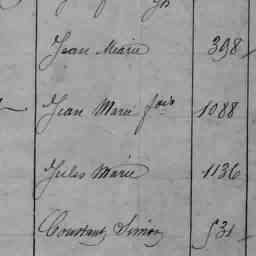 Jean Marie 398
Jean Marie fois 1088
Jules Marie 1136
Constant Simon 531